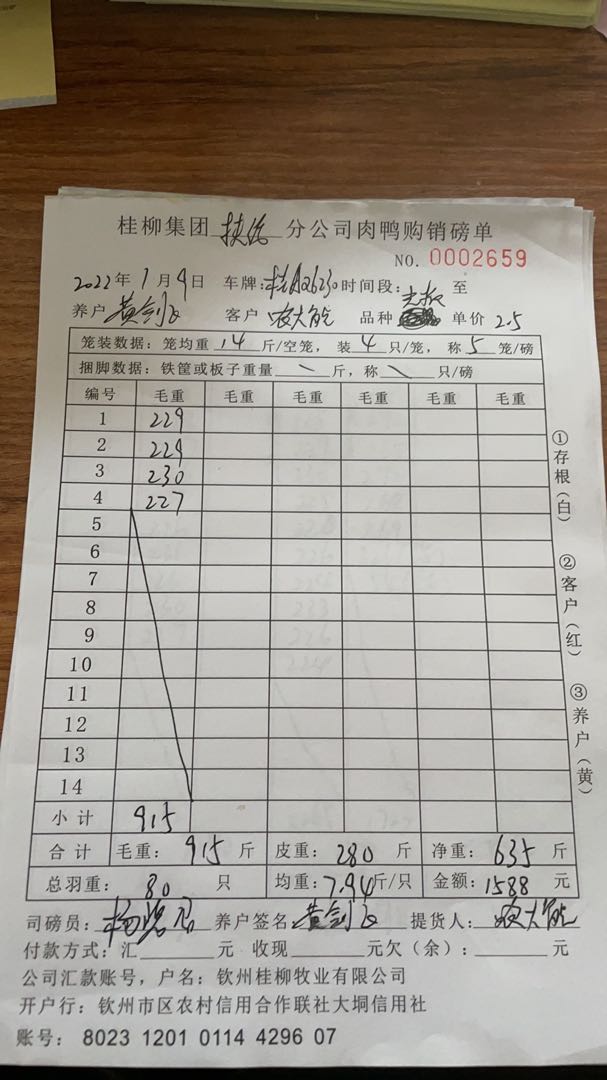 桂柳集团扶绥分公司肉鸭购销磅单
NO. 0002659
2022年1月9日 车牌:桂A26230 时间段: 至
养户 黄剑飞 客户 农大能 品种 单价 2.5
笼装数据: 笼均重 14 斤/空笼, 装 4 只/笼, 称 5 笼/磅
捆脚数据: 铁筐或板子重量 \ 斤, 称 \ 只/磅
编号 毛重 毛重 毛重 毛重 毛重 毛重
1 229
2 229
3 230
4 227
5
6
7
8
9
10
11
12
13
14
小计 915
合计 毛重: 915 斤 皮重: 280 斤 净重: 635 斤
总羽重: 80 只 均重: 7.94斤/只 金额: 1588 元
①存根(白)
②客户(红)
③养户(黄)
司磅员: 养户签名 黄剑飞 提货人: 农大能
付款方式: 汇 元 收现 元欠(余): 元
公司汇款账号, 户名: 钦州桂柳牧业有限公司
开户行: 钦州市区农村信用合作联社大垌信用社
账号: 8023 1201 0114 4296 07